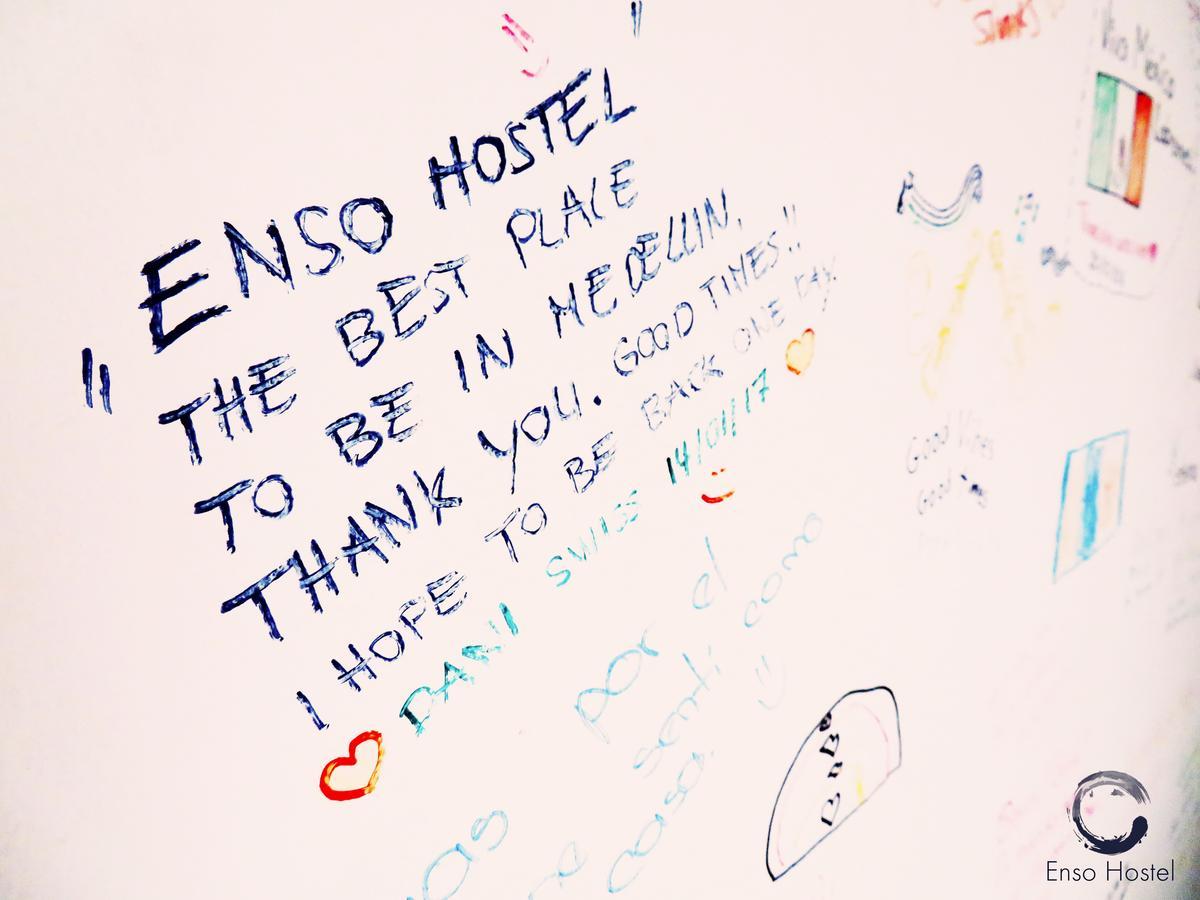 " ENSO HOSTEL "
THE BEST PLACE
TO BE IN MEDELLIN.
THANK YOU. GOOD TIMES!!
I HOPE TO BE BACK ONE DAY.
DANI SWISS 14/01/17
por el
senti como
casa.
Good Vibes
Good
Viva México
Enso Hostel